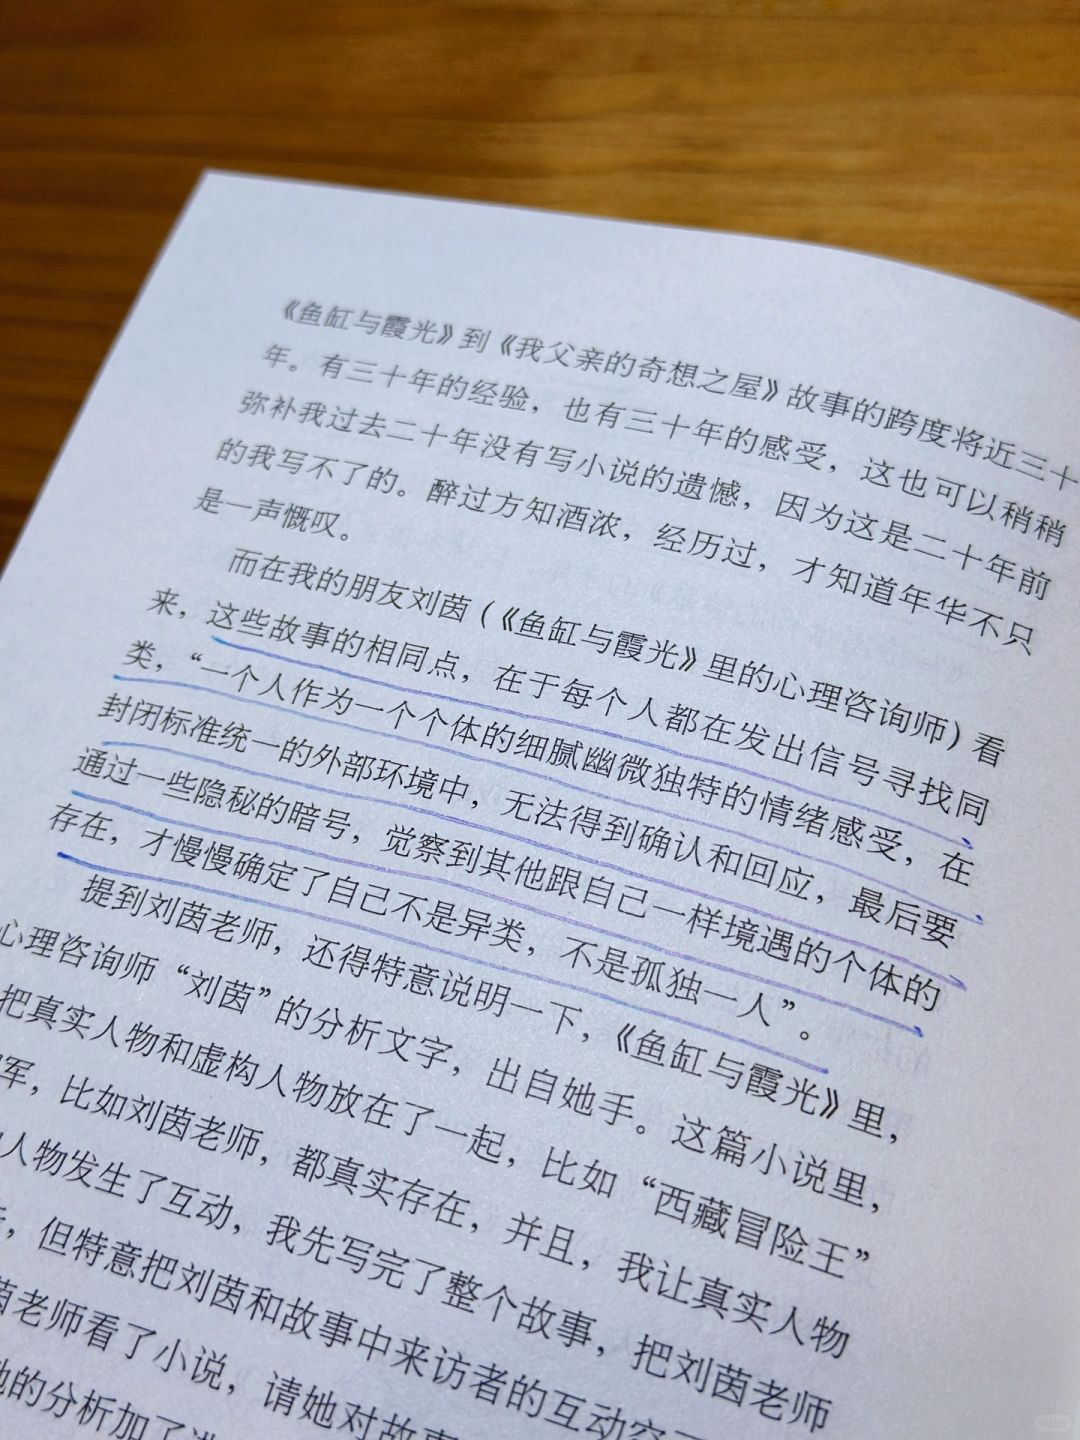 《鱼缸与霞光》到《我父亲的奇想之屋》故事的跨度将近三十
年。有三十年的经验，也有三十年的感受，这也可以稍稍
弥补我过去二十年没有写小说的遗憾，因为这是二十年前
的我写不了的。醉过方知酒浓，经历过，才知道年华不只
是一声慨叹。
而在我的朋友刘茵（《鱼缸与霞光》里的心理咨询师）看
来，这些故事的相同点，在于每个人都在发出信号寻找同
类，“一个人作为一个个体的细腻幽微独特的情绪感受，在
封闭标准统一的外部环境中，无法得到确认和回应，最后要
通过一些隐秘的暗号，觉察到其他跟自己一样境遇的个体的
存在，才慢慢确定了自己不是异类，不是孤独一人”。
提到刘茵老师，还得特意说明一下，《鱼缸与霞光》里，
心理咨询师“刘茵”的分析文字，出自她手。这篇小说里，
把真实人物和虚构人物放在了一起，比如“西藏冒险王”
军，比如刘茵老师，都真实存在，并且，我让真实人物
人物发生了互动，我先写完了整个故事，把刘茵老师
，但特意把刘茵和故事中来访者的互动
茵老师看了小说，请她对故事
她的分析加了进